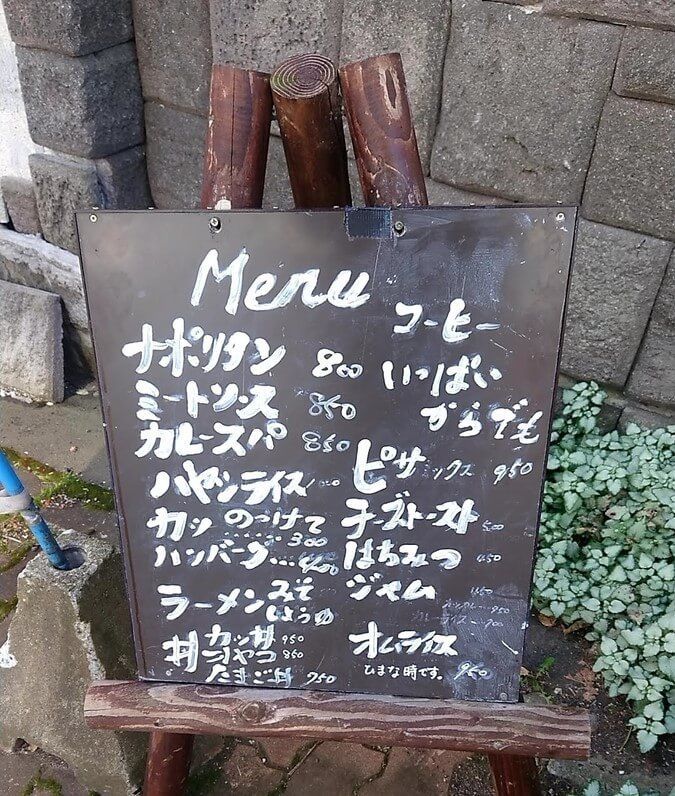 Menu
ナポリタン 800
ミートソース 850
カレースパ 850
ハヤシライス
カツのっけて
300
ハンバーグ...
ラーメン みそ
しょうゆ
丼 カツ丼 950
たまご丼 750
コーヒー
いっぱい
からでも
ピザ ミックス 950
チーズトースト 500
はちみつ 450
ジャム
オムライス
ひまな時です。 950